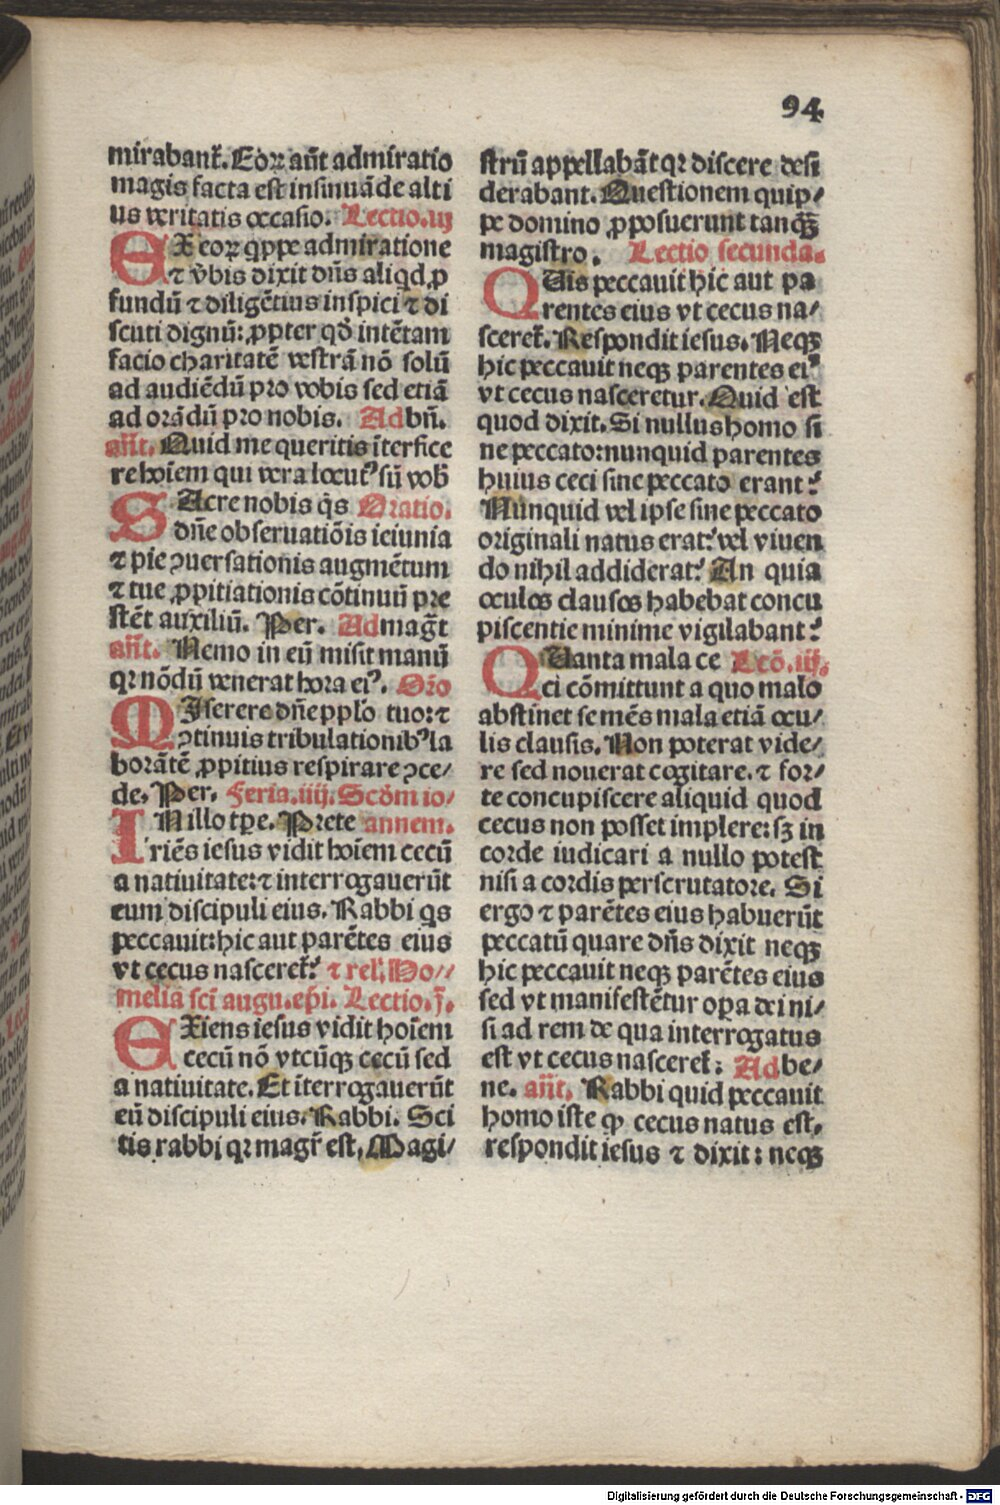 94
mirabant᷑. Eoꝝ aūt admiratio
magis facta est insinuāde alti
us veritatis occasio. Lectio.iij
EX eoꝝ qͥppe admiratione
⁊ v̓bis dixit dn̄s aliqͥd ꝓ
fundū ⁊ diligētius inspici ⁊ di
scuti dignū: ꝓpter qd̓ intētam
facio charitatē vestrā nō solū
ad audiēdū pro vobis sed etiā
ad orādū pro nobis. Ad bn̄.
an̄t. Quid me queritis īterfice
re hoīem qui vera locutꝰ sū vob̄
SAcre nobis qͥs Oratio.
dn̄e obseruatiōis ieiunia
⁊ pie ꝯuersationis augmētum
⁊ tue ꝓpitiationis cōtinuū pre
stēt auxiliū. Per. Ad mag̅t
an̄t. Nemo in eū misit manū
qꝛ nōdū venerat hora eiꝰ. Orō
MIserere dn̄e pplo tuo: ⁊
ꝯtinuis tribulationibꝰ la
borātē ꝓpitius respirare ꝯce/
de. Per. Feria.iiij. Scd̓m io/
INillo tꝑe. Prete annem.
riēs iesus vidit hoīem cecū
a natiuitate: ⁊ interrogauerūt
eum discipuli eius. Rabbi qͥs
peccauit: hic aut parētes eius
vt cecus nasceret᷑? ⁊ reli. Ho//
melia sci augu. epi. Lectio.j.
EXiens iesus vidit hoīem
cecū nō vtcūqꝫ cecū sed
a natiuitate. Et īterrogauerūt
eū discipuli eius. Rabbi. Sci
tis rabbi qꝛ magr̄ est. Magi/
strū appellabāt qꝛ discere desi
derabant. Questionem quip/
pe domino ꝓposuerunt tanqꝫ
magistro. Lectio secunda.
QUis peccauit hic aut pa
rentes eius vt cecus na/
sceret᷑. Respondit iesus. Neqꝫ
hic peccauit neqꝫ parentes eiꝰ
vt cecus nasceretur. Quid est
quod dixit. Si nullus homo si
ne peccato: nunquid parentes
huius ceci sine peccato erant?
Nunquid vel ipse sine peccato
originali natus erat? vel viuen
do nihil addiderat? An quia
oculos clausos habebat concu
piscentie minime vigilabant?
QUanta mala ce Lcō.iij.
ci cōmittunt a quo malo
abstinet se mēs mala etiā ocu/
lis clausis. Non poterat vide/
re sed nouerat cogitare. ⁊ for/
te concupiscere aliquid quod
cecus non posset implere: sꝫ in
corde iudicari a nullo potest
nisi a cordis perscrutatore. Si
ergo ⁊ parētes eius habuerūt
peccatū quare dn̄s dixit neqꝫ
hic peccauit neqꝫ parētes eius
sed vt manifestētur oꝑa dei ni/
si ad rem de qua interrogatus
est vt cecus nasceret᷑: Ad be/
ne. an̄t. Rabbi quid peccauit
homo iste ꝙ cecus natus est.
respondit iesus ⁊ dixit: neqꝫ
Digitalisierung gefördert durch die Deutsche Forschungsgemeinschaft - DFG